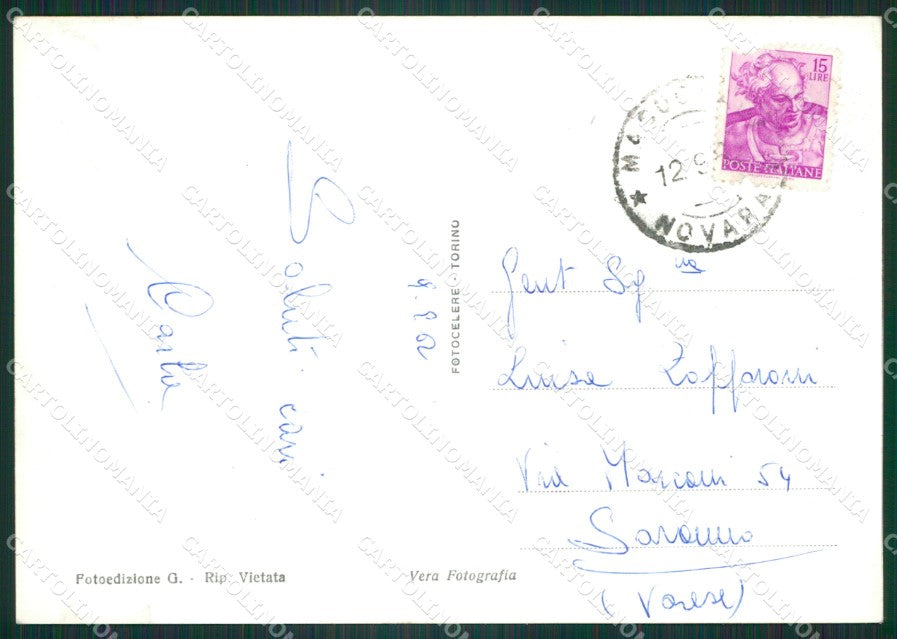 15
LIRE
POSTE ITALIANE
12.9
NOVARA
Saluti cari
Carla
FOTOCELERE - TORINO
Gent Sg na
Luisa Zaffaroni
Via Marconi 54
Saronno
(Varese)
Fotoedizione G. - Rip. Vietata
Vera Fotografia
CARTOLINOMANIA